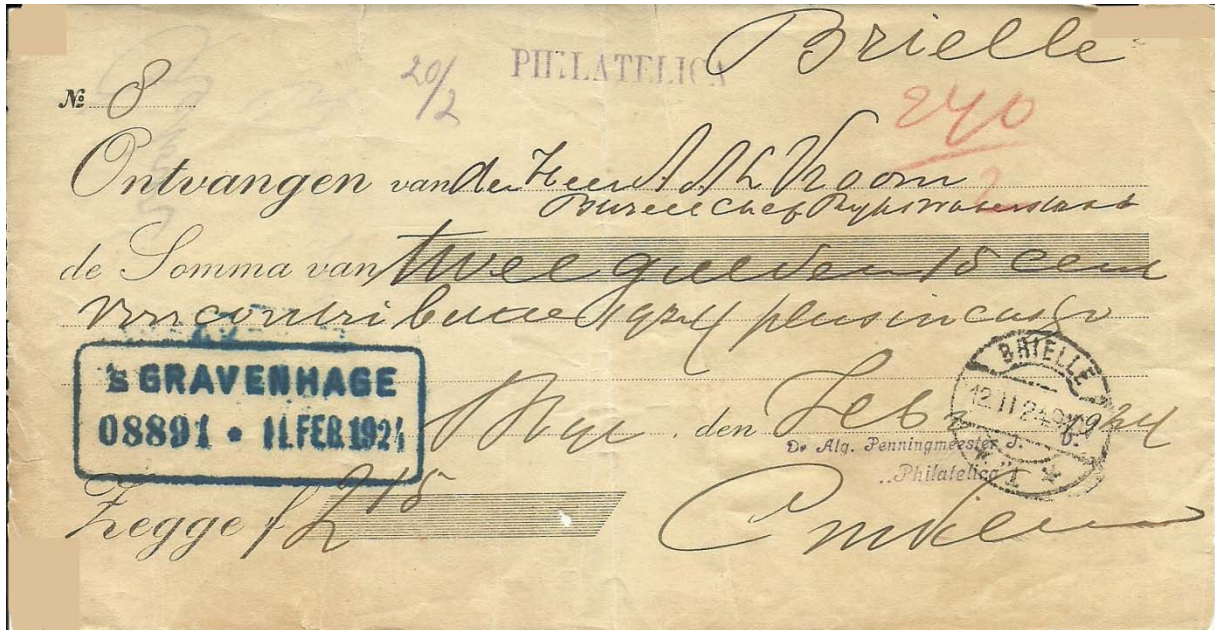 Brielle
20/2
PHILATELICA
№ 8
240
2
Ontvangen van den Heer A A L Vroom
Bureelchef Rijkswaterstaat
de Somma van twee gulden 15 cent
voor contributie 1924 plus incasso
's GRAVENHAGE
08891 • 11 FEB. 1924
BRIELLE
12 II 24
Hage, den Feb 1924
De Alg. Penningmeester J.
„Philatelica”
Zegge f 2 15